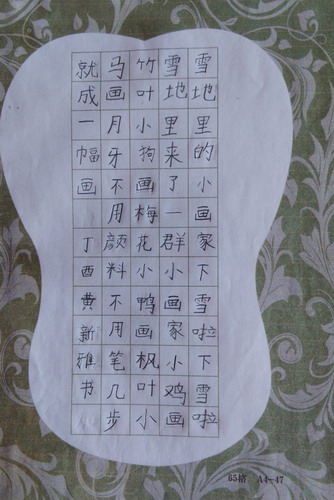 雪地里的小画家下雪啦下雪啦
雪地里来了一群小画家小鸡画
竹叶小狗画梅花小鸭画枫叶小
马画月牙不用颜料不用笔几步
就成一幅画 丁酉黄新雅书
65格 A4-47